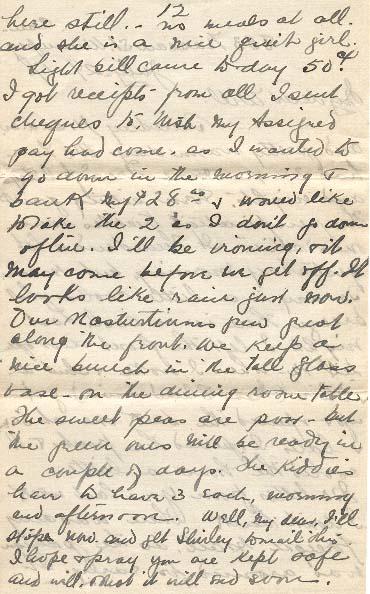 12
here still - no meals at all.
and she is a nice quiet girl.
Light bill came to-day 50¢.
I got receipts from all I sent
cheques to. Wish my Assigned
pay had come. as I wanted to
go down in the morning &
bank my $28.00 & would like
to take the 2 as I don't go down
often. I'll be ironing, & it
may come before we get off. It
looks like rain just now.
Our Nasturtiums are great
along the front. We keep a
nice bunch in the tall glass
vase - on the dining room table,
The sweet peas are poor - but
the green ones will be ready in
a couple of days. The Kiddies
have to have 3 each, morning
and afternoon. Well, my dear, I'll
stop now and get Shirley to mail this
I hope & pray you are kept safe
and well. & that it will end soon.